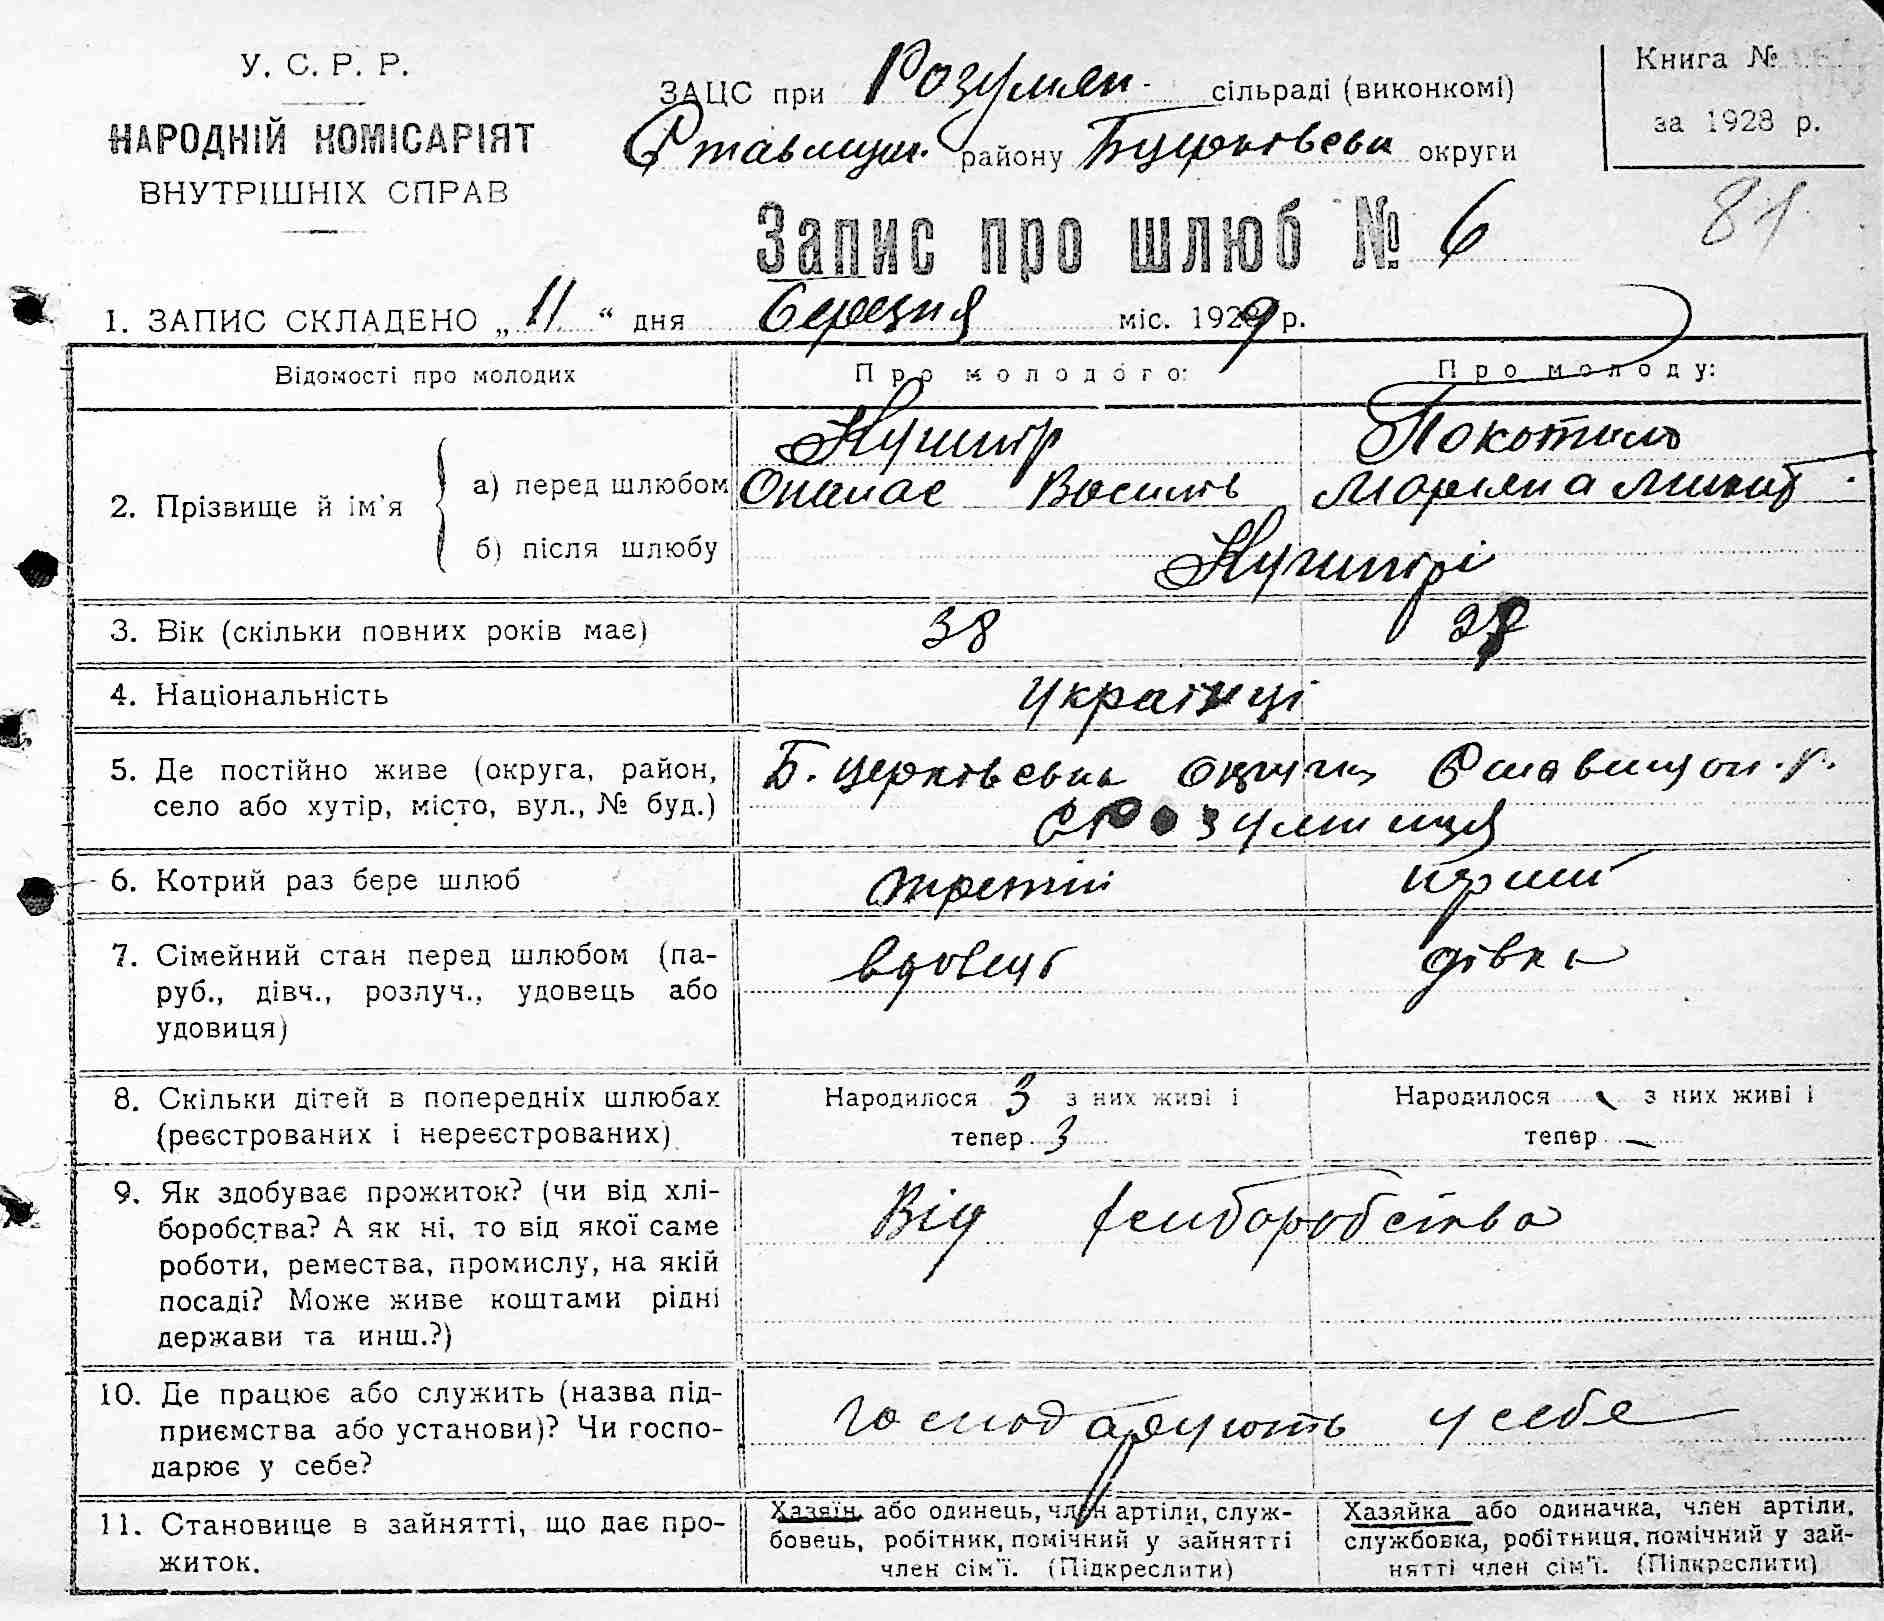 У. С. Р. Р.
НАРОДНІЙ КОМІСАРІЯТ
ВНУТРІШНІХ СПРАВ
ЗАЦС при Розумен. сільраді (виконкомі)
Ставищен. району Бцерківськ округи
Книга №
за 1928 р.
81
Запис про шлюб № 6
1. ЗАПИС СКЛАДЕНО „ 11 “ дня березня міс. 1929 р.
Відомості про молодих
Про молодого:
Про молоду:
2. Прізвище й ім'я
а) перед шлюбом
Кушнір
Опанас Василь
Покотило
Маріяна Микит
б) після шлюбу
Кушнірі
3. Вік (скільки повних років має)
38
4. Національність
українці
5. Де постійно живе (округа, район,
село або хутір, місто, вул., № буд.)
Б. церківська округи Ставищан. р.
с Розумниця
6. Котрий раз бере шлюб
третій
перший
7. Сімейний стан перед шлюбом (па-
руб., дівч., розлуч., удовець або
удовиця)
вдовець
дівка
8. Скільки дітей в попередніх шлюбах
(реєстрованих і нереєстрованих)
Народилося 3 з них живі і
тепер 3
Народилося - з них живі і
тепер -
9. Як здобуває прожиток? (чи від хлі-
боробства? А як ні, то від якої саме
роботи, ремества, промислу, на якій
посаді? Може живе коштами рідні
держави та инш.?)
Від хліборобства
10. Де працює або служить (назва під-
приємства або установи)? Чи госпо-
дарює у себе?
господарують у себе
11. Становище в зайнятті, що дає про-
житок.
Хазяїн, або одинець, член артіли, служ-
бовець, робітник, помічний у зайнятті
член сім'ї. (Підкреслити)
Хазяйка або одиначка, член артіли,
службовка, робітниця, помічний у зай-
нятті член сім'ї. (Підкреслити)